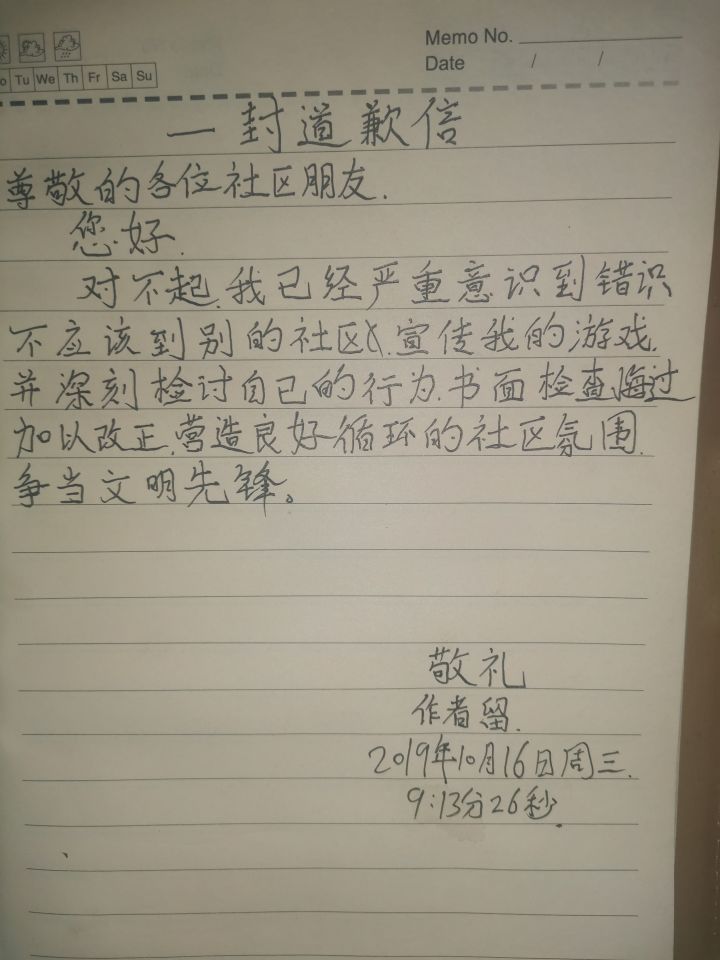 Memo No.
Date / /
Tu We Th Fr Sa Su
一封道歉信
尊敬的各位社区朋友.
您好.
对不起.我已经严重意识到错识
不应该到别的社区.宣传我的游戏.
并深刻检讨自己的行为.书面检查悔过
加以改正.营造良好循环的社区氛围.
争当文明先锋。
敬礼
作者留.
2019年10月16日周三.
9:13分26秒.